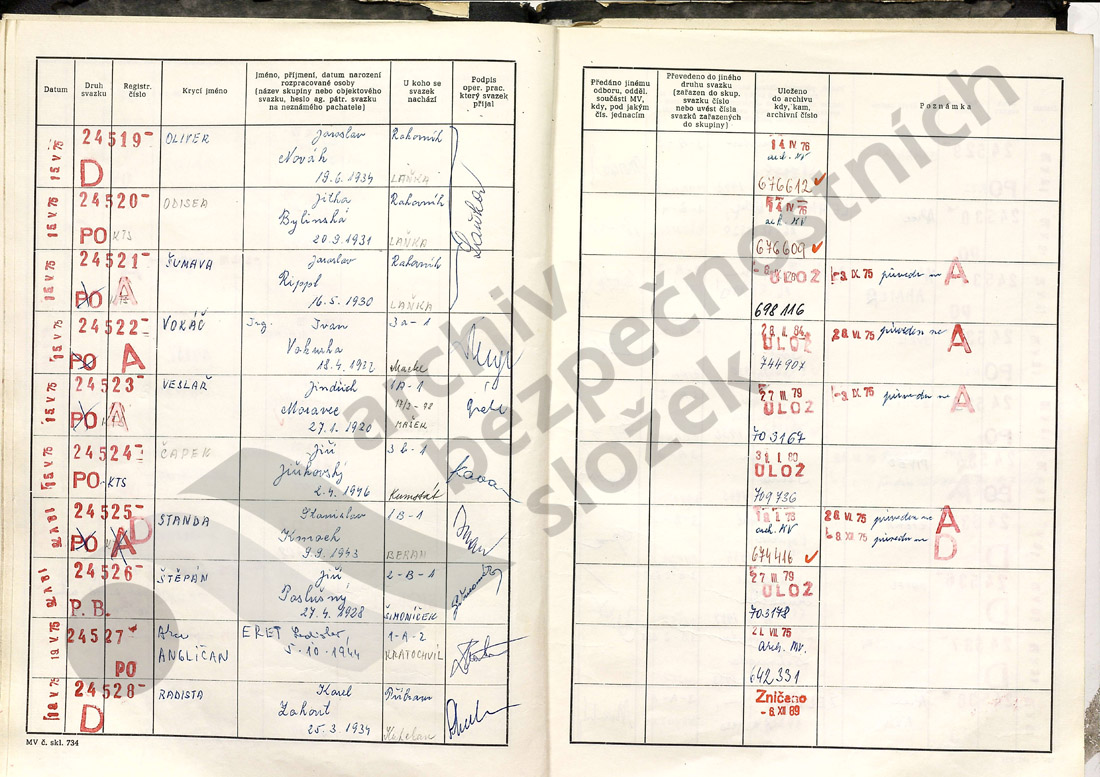 Datum
Druh svazku
Registr. číslo
Krycí jméno
Jméno, příjmení, datum narození
rozpracované osoby
(název skupiny nebo objektového
svazku, heslo ag. pátr. svazku
na neznámého pachatele)
U koho se
svazek
nachází
Podpis
oper. prac.
který svazek
přijal
Předáno jinému
odboru, odděl.
součásti MV,
kdy, pod jakým
čís. jednacím
Převedeno do jiného
druhu svazku
(zařazen do skup.
svazku číslo
nebo uvést čísla
svazků zařazených
do skupiny)
Uloženo
do archivu
kdy, kam,
archivní číslo
Poznámka
15 V 75
24519
OLIVER
Jaroslav
Rakovník
Novák
D
19.6.1934
LAŇKA
14. IV 76
arch. MV
676612
15 V 75
24520
ODISEA
Jitka
Rakovník
Bylinská
PO KTS
20.9.1931
LAŇKA
14. IV 76
arch. MV
676609
15 V 75
24521
ŠUMAVA
Jaroslav
Rakovník
Rippl
PO A
16.5.1930
LAŇKA
ULOŽ
698116
-3. IX. 75 převeden na A
15 V 75
24522
VOKÁČ
Ing. Ivan
3a-1
PO A
18.4.1932
ULOŽ
744907
26. VI. 75 převeden na A
15 V 75
24523
VESLAŘ
Jindřich
1A-1
Moravec
PO A
27.1.1920
MAŠEK
27 III. 79
ULOŽ
703167
-3. IX. 75 převeden na A
15 V 75
24524
ČAPEK
Jiří
3b-1
Jiříkovský
PO KTS
2.4.1946
31. I. 80
ULOŽ
709736
24525
STANDA
Stanislav
1B-1
Kmoch
PO A D
9.9.1943
BERAN
arch. MV
674416
26. VI. 75 převeden na A
-8. XII 75 převeden na D
24526
ŠTĚPÁN
Jiří
2-B-1
Poslušný
P. B.
27.4.1928
ŠIMONÍČEK
27 III. 79
ULOŽ
703178
19 V 75
24527
Akce
ANGLIČAN
ERET Ladislav,
1-A-2
5.10.1944
KRATOCHVÍL
PO
21. VII. 75
Arch. MV.
642331
24528
RADISTA
Karel
Příbram
D
25.3.1934
Zničeno
-6. XII 89
MV č. skl. 734
archiv
bezpečnostních
složek